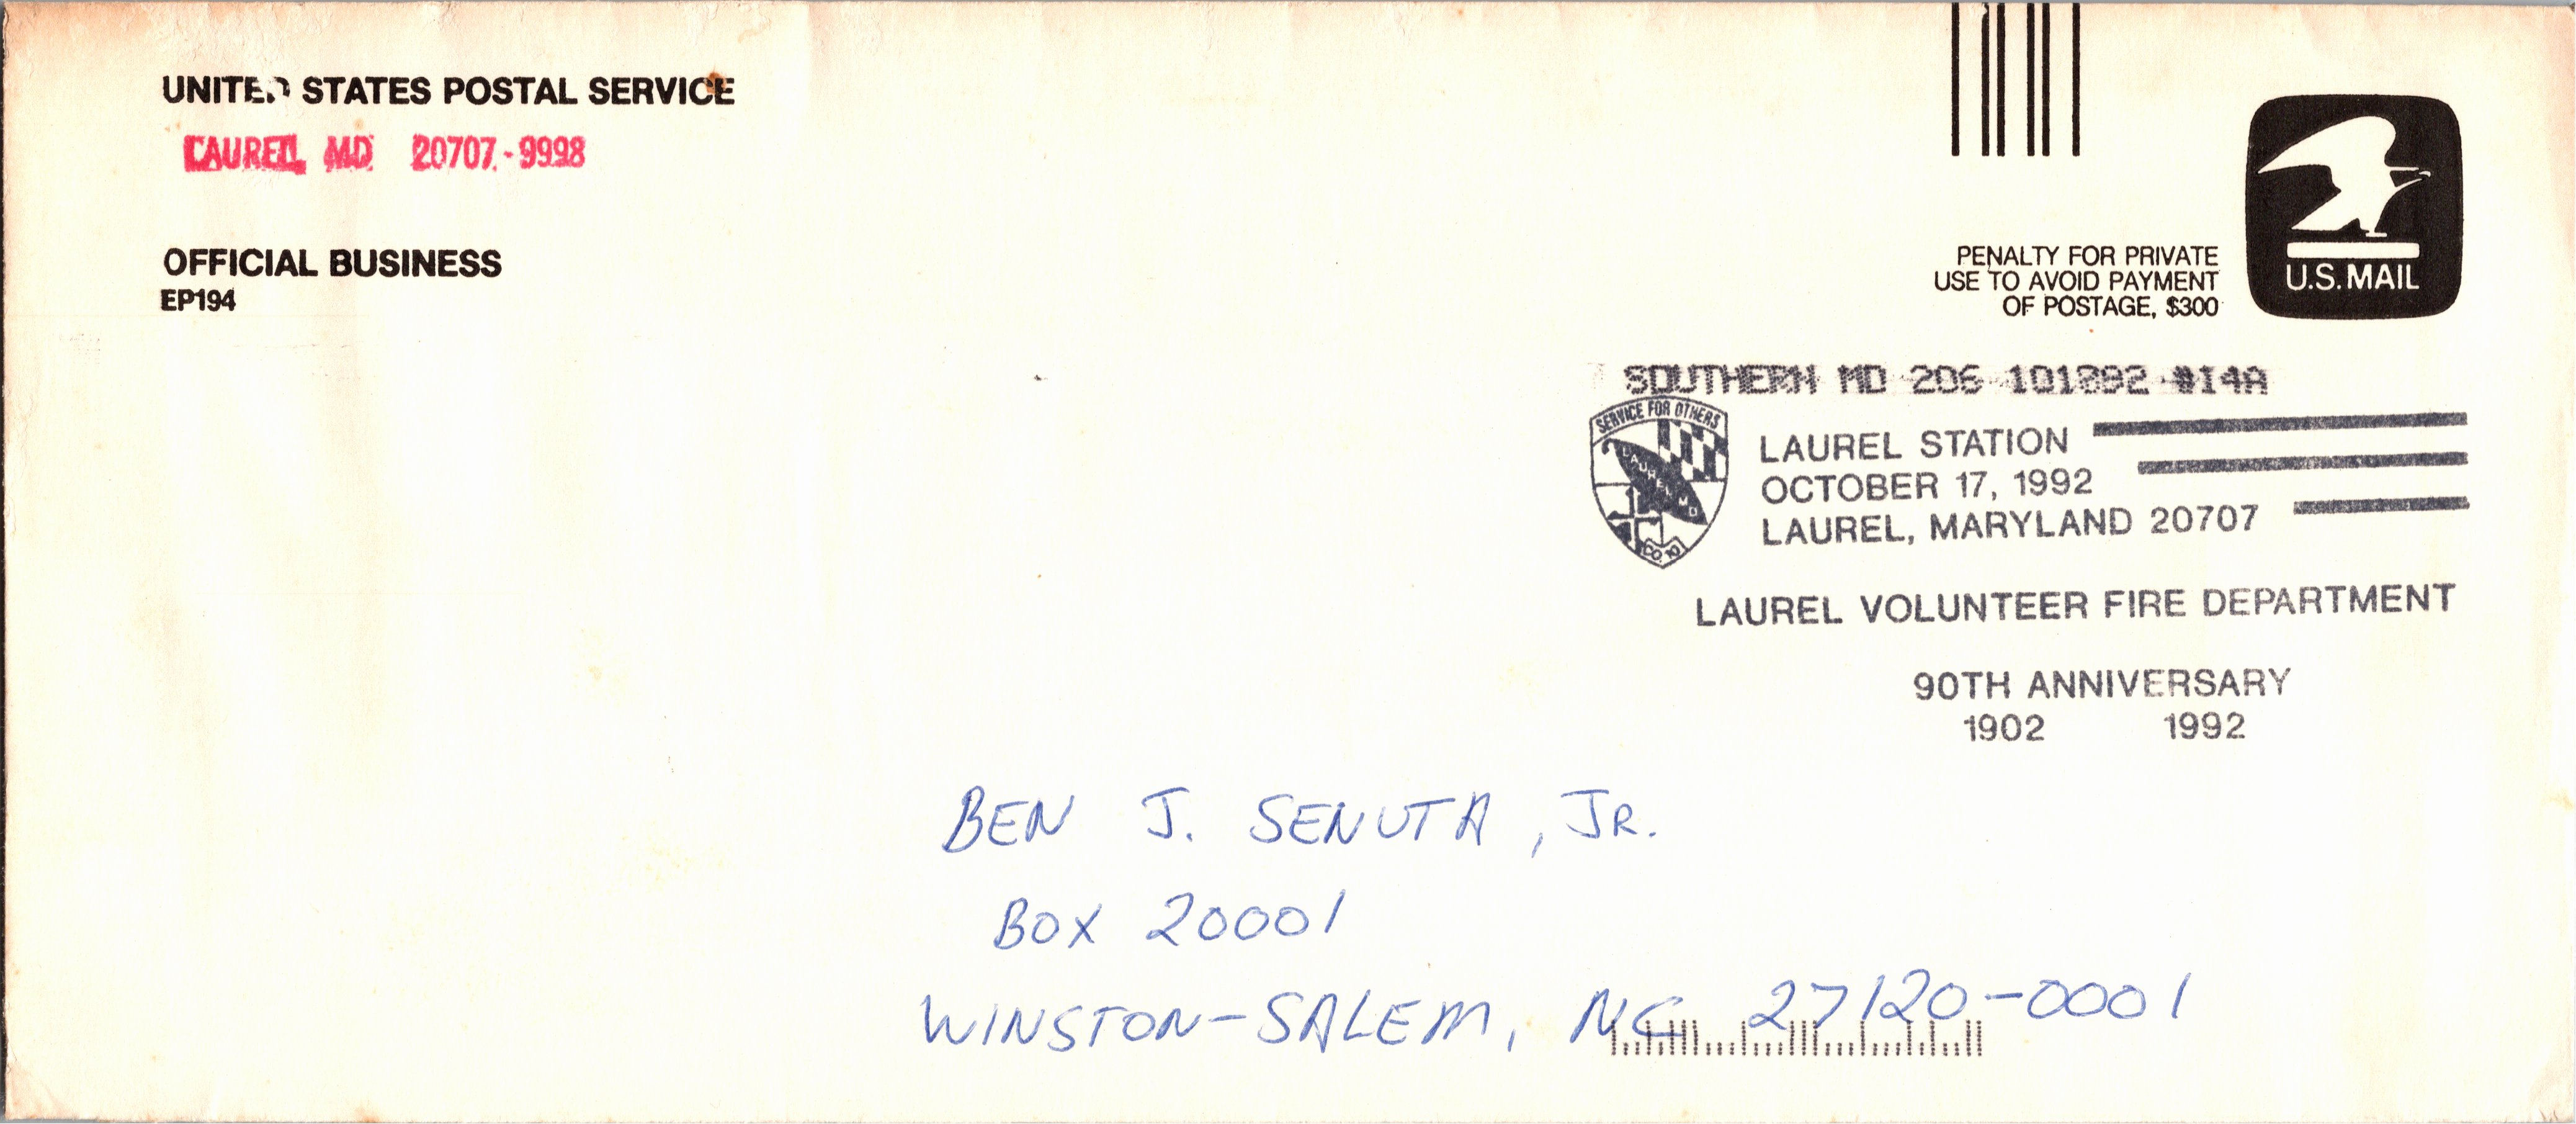 UNITED STATES POSTAL SERVICE
LAUREL MD 20707-9998
OFFICIAL BUSINESS
EP194
PENALTY FOR PRIVATE
USE TO AVOID PAYMENT
OF POSTAGE, $300
U.S. MAIL
SOUTHERN MD 206 #14A
SERVICE FOR OTHERS
LAUREL MD
CO. 10
LAUREL STATION
OCTOBER 17, 1992
LAUREL, MARYLAND 20707
LAUREL VOLUNTEER FIRE DEPARTMENT
90TH ANNIVERSARY
1902 1992
BEN J. SENUTA, JR.
BOX 20001
WINSTON-SALEM, NC 27120-0001